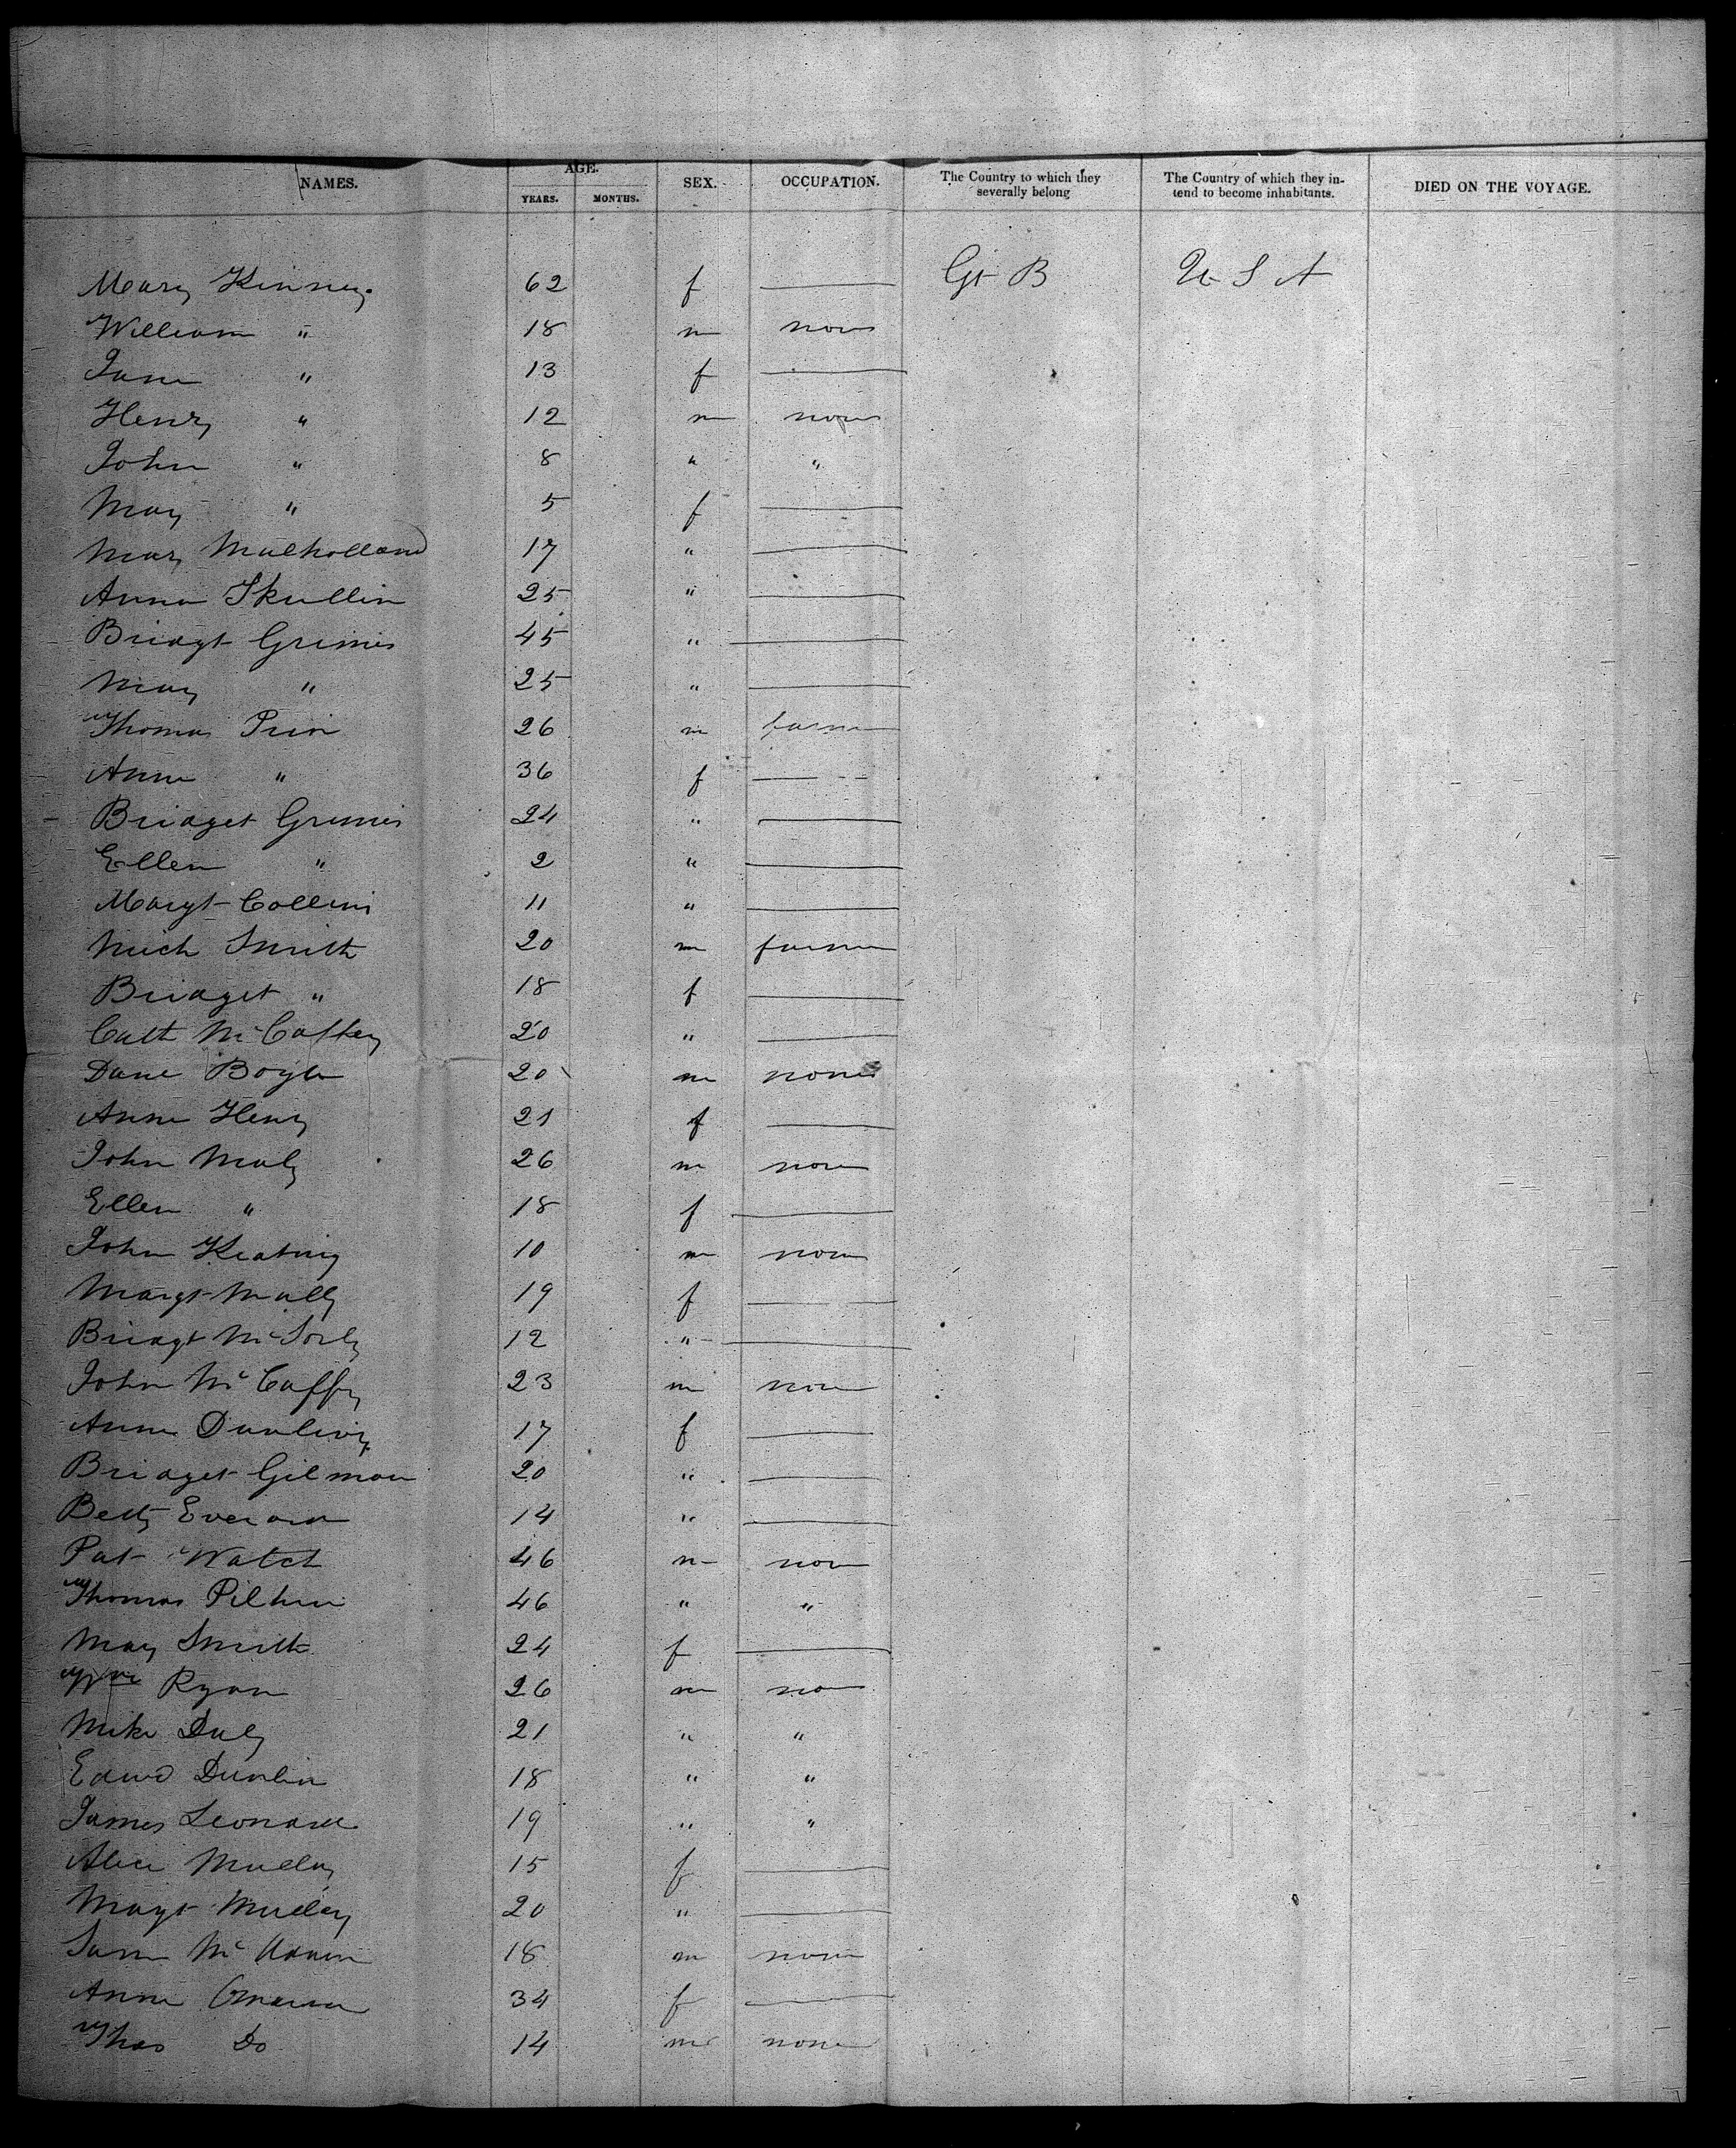 NAMES. AGE. YEARS. MONTHS. SEX. OCCUPATION. The Country to which they severally belong The Country of which they intend to become inhabitants. DIED ON THE VOYAGE.
Mary Kinney 62 f — Gt B U S A
William " 18 m none
Jane " 13 f —
Henry " 12 m none
John " 8 " "
Mary " 5 f —
Mary Mulholland 17 " —
Anna Skullin 25 " —
Bridgt Grimes 45 " —
Mary " 25 " —
Thomas 26 m farmer
Anne " 36 f —
Bridget Grimes 24 " —
Ellen " 2 " —
Margt Collins 11 " —
Mich Smith 20 m farmer
Bridget " 18 f —
Cath McCaffery 20 " —
Boyle 20 m none
Anne Henry 21 f —
John Maly 26 m none
Ellen " 18 f —
John Keating 10 m none
Margt Mally 19 f —
Bridgt McSorly 12 " —
John McCaffry 23 m none
Anne Dunlivy 17 f —
Bridget Gilmon 20 " —
Betty Everard 14 " —
Pat Watch 46 m none
Thomas 46 " "
Mary Smith 24 f —
Wm Ryan 26 m no
Mike Daly 21 " "
Edwd Dunlin 18 " "
James Leonard 19 " "
Alice 15 f —
Magt 20 " —
18 m none
Anne 34 f —
Thos Do 14 m none